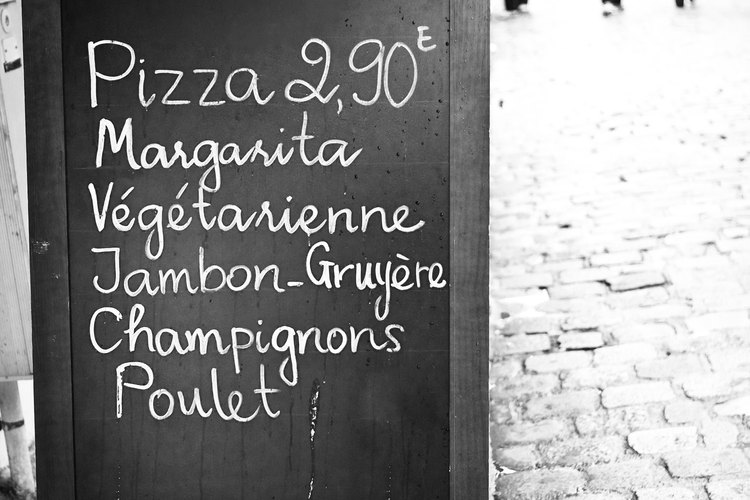 Pizza 2,90E
Margarita
Végétarienne
Jambon-Gruyère
Champignons
Poulet